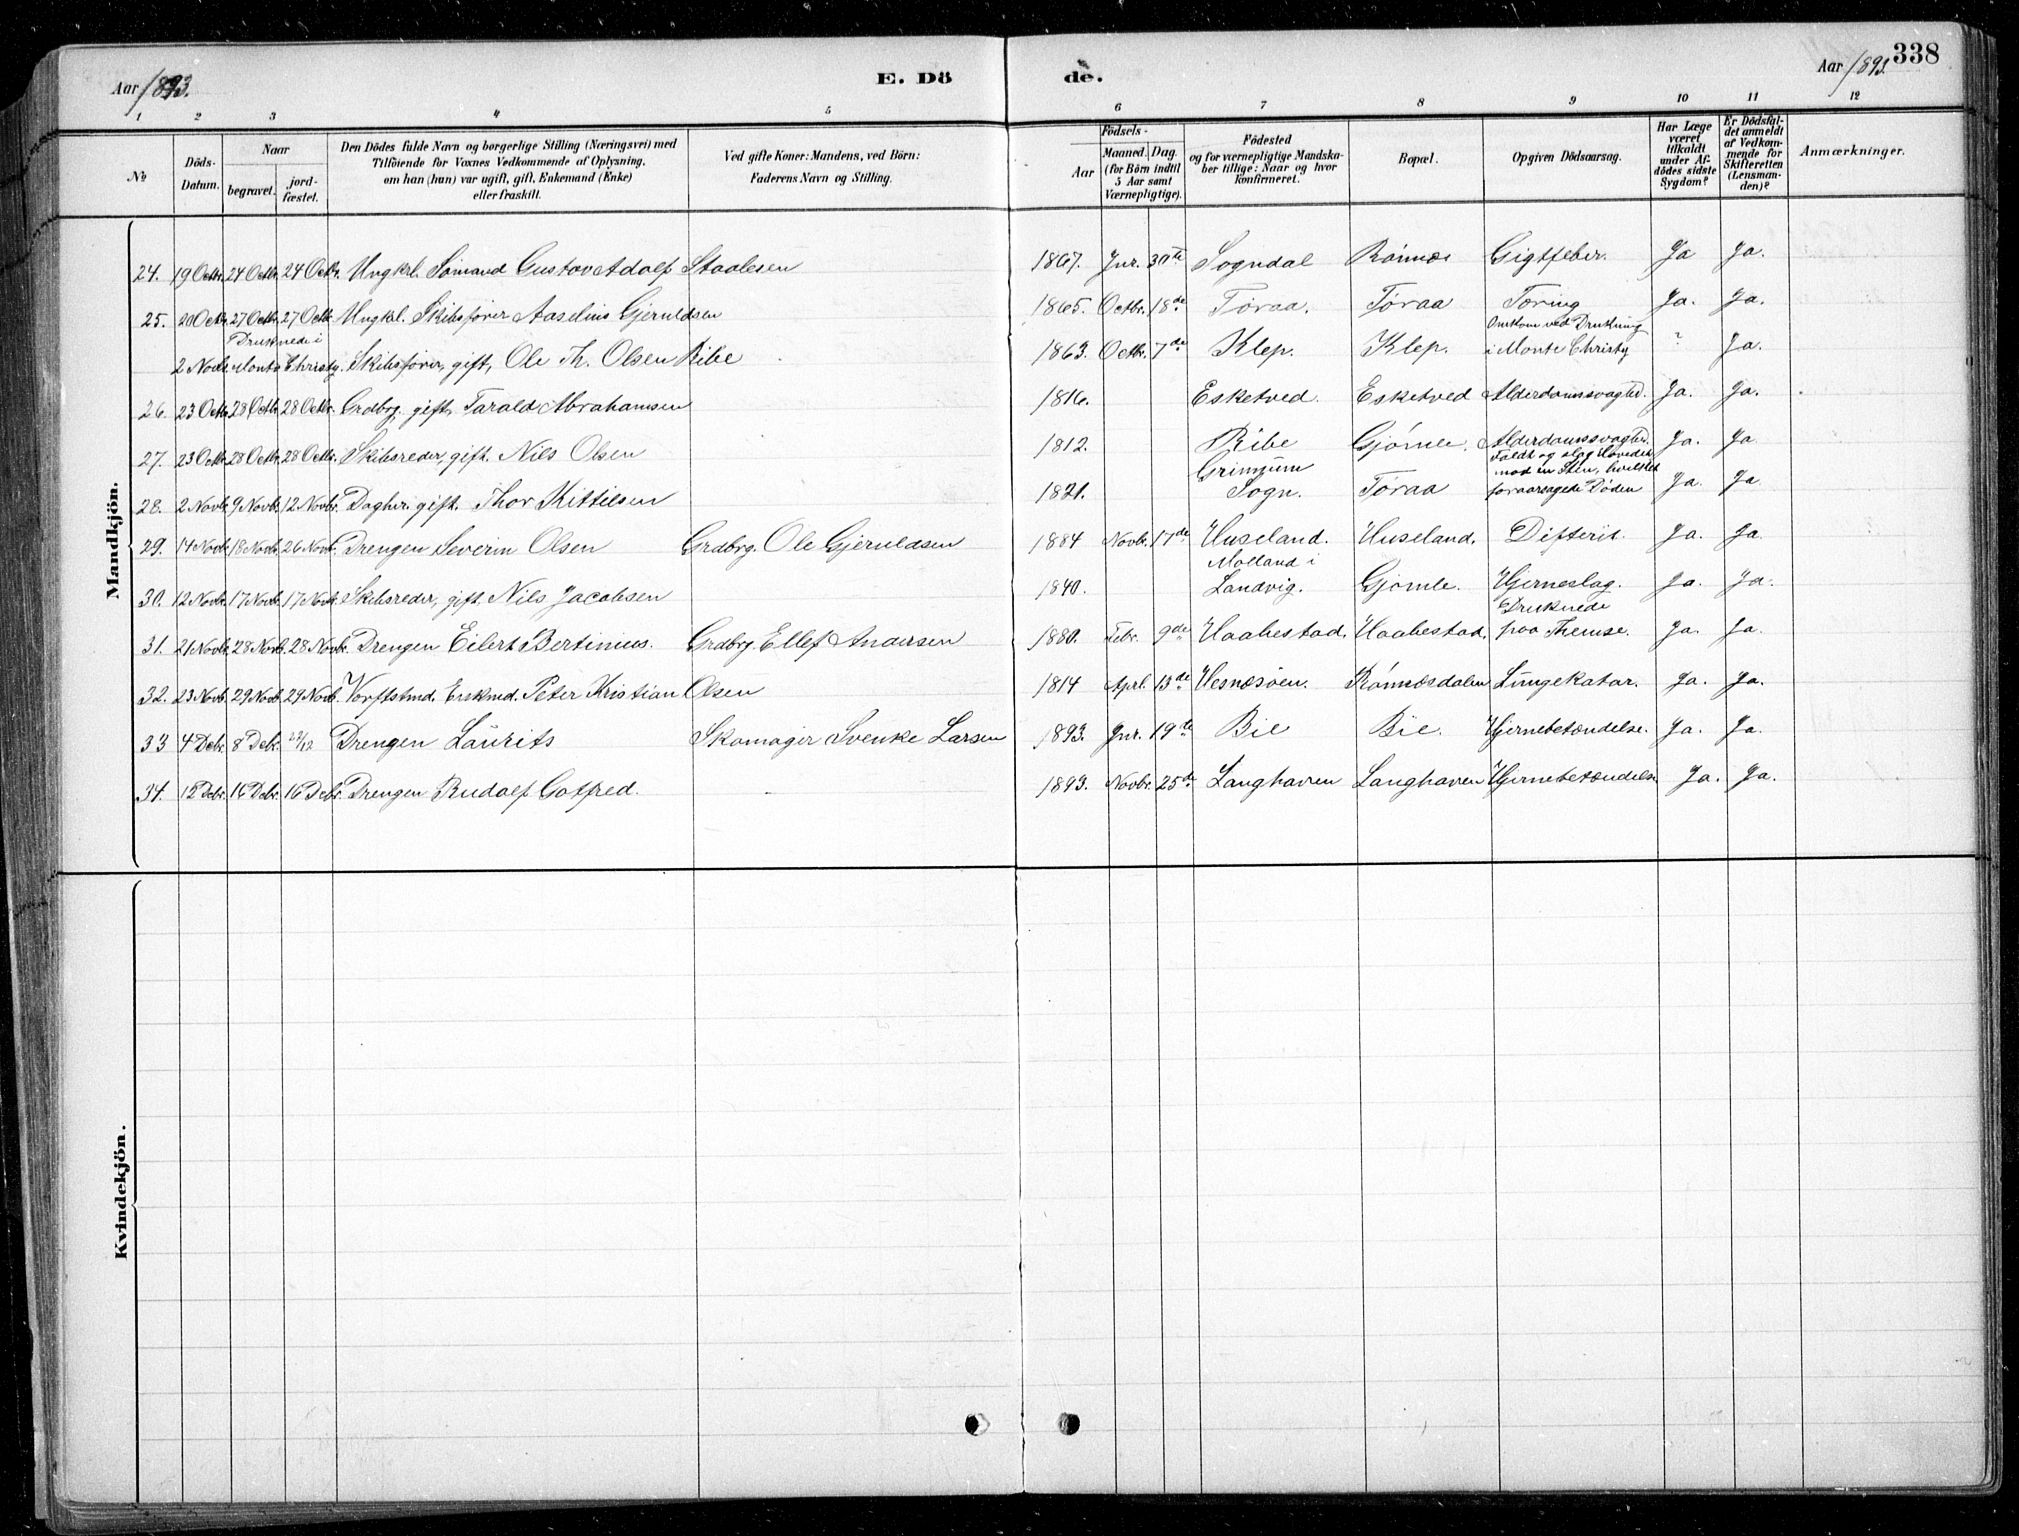 Aar 1893. E. Dö de. Aar 1893. 338
1 2 3 4 5 6 7 8 9 10 11 12
No
Döds-Datum.
Naar
begravet.
jord-fæstet.
Den Dödes fulde Navn og borgerlige Stilling (Næringsvei) med
Tilföiende for Voxnes Vedkommende af Oplysning,
om han (hun) var ugift, gift, Enkemand (Enke)
eller fraskilt.
Ved gifte Koner: Mandens, ved Börn:
Faderens Navn og Stilling.
Födsels-
Aar
Maaned. Dag.
(for Börn indtil
5 Aar samt
Værnepligtige).
Födested
og for værnepligtige Mandska-
ber tillige: Naar og hvor
konfirmeret.
Bopæl.
Opgiven Dödsaarsag.
Har Læge
været
tilkaldt
under Af-
dödes sidste
Sygdom?
Er Dödsfal-
det anmeldt
af Vedkom-
mende for
Skifteretten
(Lensman-
den)?
Anmærkninger.
Mandkjön.
24. 19 Octbr. 24 Octbr. 24 Octbr. Ungkrl. Sömand Gustov Adolf Staalesen 1867. Jnr. 30te Sogndal Rönnes Gigtfeber. Ja Ja.
25. 20 Octbr. 27 Octbr. 27 Octb. Ungkrl. Skibsfører Aaselius Gjeruldsen 1865. Octbr. 18de Tøraa. Tøraa Tæring Ja. Ja.
Druknede i Omkom ved Drukning
2 Novb. Monte Christy. Skibsfører, gift, Ole Th. Olsen Ribe 1863. Octbr. 7de Klep. Klep. i Monte Christy ? Ja.
26. 23 Octbr. 28 Octb. 28 Octbr. Grdbrg. gift, Tarald Abrahamsen 1816. Esketved. Esketved Alderdomssvaghed. Ja. Ja.
27. 23 Octbr. 28 Octbr. 28 Octbr. Skibsreder, gift. Nils Olsen 1812. Ribe Gjømle. Alderdomssvaghed. Ja. Ja
Grimzum Faldt og slog Hovedet
mod en Sten, hvilket
28. 2 Novbr. 9 Novbr. 12 Novbr. Daglnr. gift. Thor Kittilsen 1821. Sogn. Tøraa foraarsagede Døden Ja. Ja
29. 14 Novbr. 18 Novbr. 26 Novbr. Drengen Severin Olsen Grdbrg. Ole Gjeruldsen 1884 Novbr. 17de Huseland. Huseland. Difterit. Ja. Ja
Molland i
30. 12 Novbr. 17 Novbr. 17 Novb. Skibsreder, gift. Nils Jacobsen 1840. Landvig. Gjömle. Hjerneslag. Ja. Ja.
Druknede
31. 21 Novbr. 28 Novb. 28 Novbr. Drengen Eilert Bertinius. Grdbrg. Ellef Andersen 1880. Febr. 9de Haabestad. Haabestad. paa Themse. Ja. Ja.
32. 23 Novb. 29 Novb. 29 Novb. Værftstmd. Enkmd. Peter Kristian Olsen 1814 Aprl. 13de Hesnesøen. Rönnesdalen Lungekatar. Ja. Ja.
33 4 Debr. 8 Debr. 28/12 Drengen Laurits Skomager Svenke Larsen 1893. Jnr. 19de Bie Bie. Hjernebetændelse. Ja. Ja.
34. 12 Debr. 16 Debr. 16 Debr. Drengen Rudolf Gotfred. 1893. Novbr. 25de Langhaven Langhaven Hjernebetændelse Ja. Ja.
Kvindekjön.